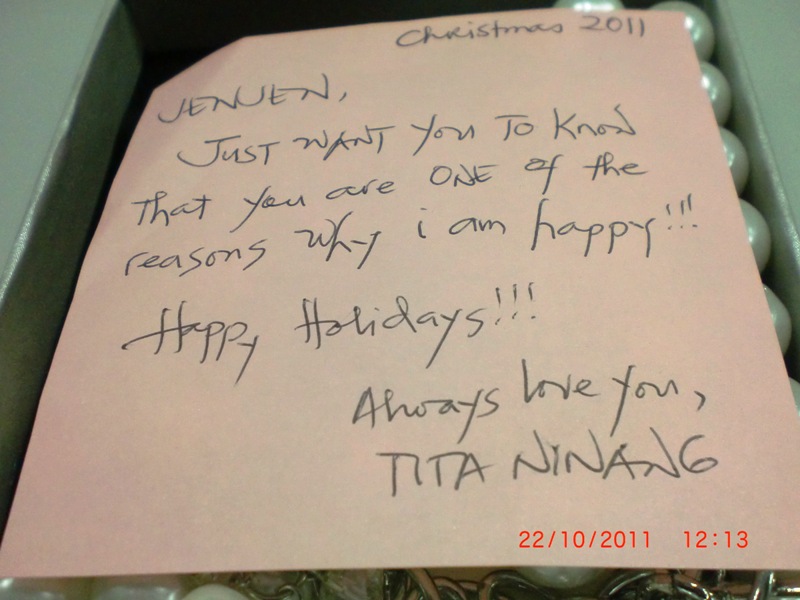 Christmas 2011
JENJEN,
JUST WANT You To Know
that you are ONE of the
reasons why i am happy!!!
Happy Holidays!!!
Always love you,
TITA NINANG
22/10/2011 12:13